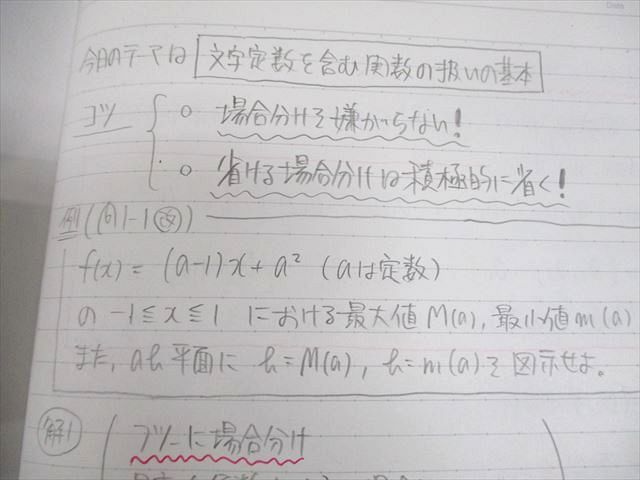 Date
今日のテーマは 文字定数を含む関数の扱いの基本
コツ
○ 場合分けを嫌がらない!
○ 省ける場合分けは積極的に省く!
例1 (1-1改)
f(x) = (a-1)x + a² (aは定数)
の -1≦x≦1 における最大値 M(a), 最小値 m(a)
また, ab平面に b=M(a), b=m(a)を図示せよ。
解1
フツーに場合分け